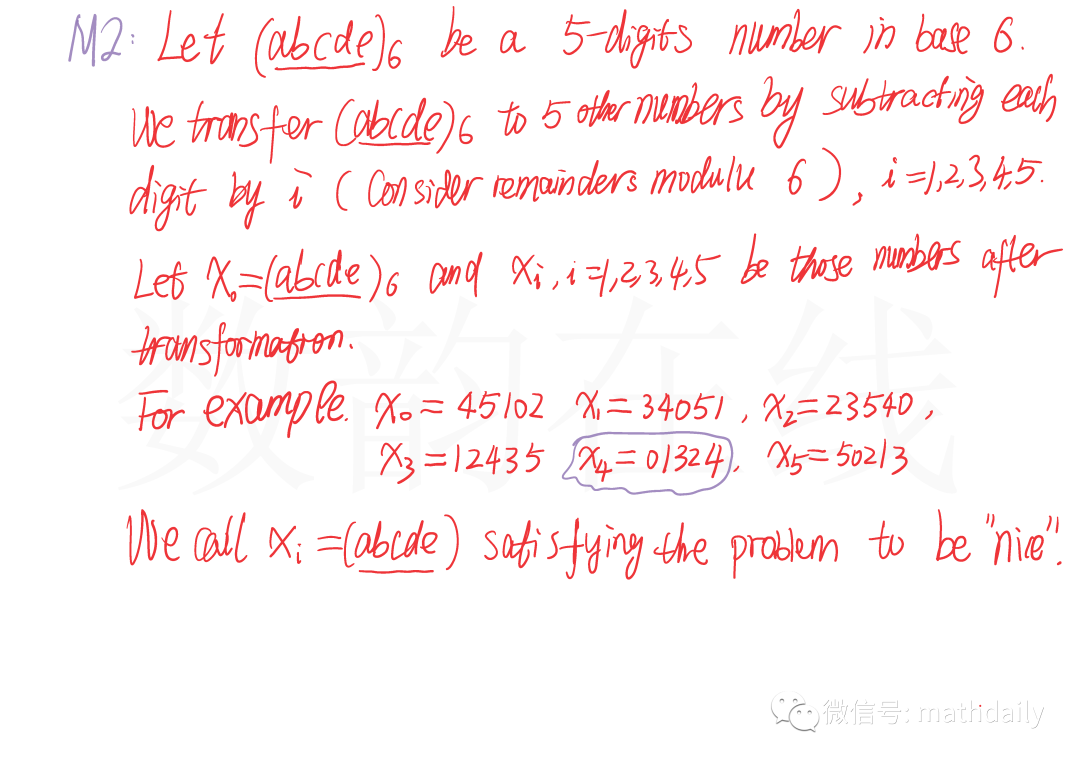 M2: Let (abcde)₆ be a 5-digits number in base 6.
We transfer (abcde)₆ to 5 other numbers by subtracting each
digit by i (Consider remainders modulu 6), i=1,2,3,4,5.
Let x₀=(abcde)₆ and xᵢ, i=1,2,3,4,5 be those numbers after
transformation.
For example. x₀=45102 x₁=34051, x₂=23540,
x₃=12435 x₄=01324, x₅=50213
We call xᵢ=(abcde) satisfying the problem to be "nice".
数韵在线
微信号: mathdaily